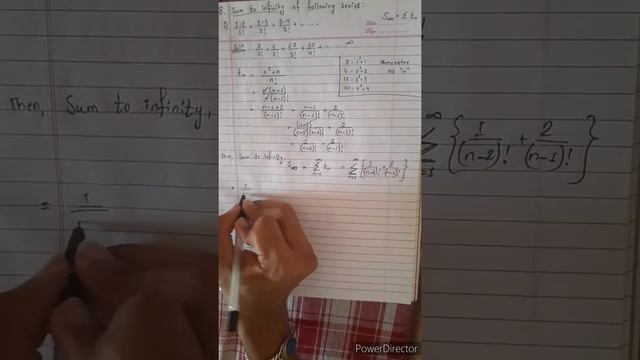 8. Sum to infinity of following series:
i) 1·2/1! + 2·3/2! + 3·4/3! + ----
S∞ = Σ tn
Solⁿ 2/1! + 6/2! + 12/3! + 20/4! + ---- ∞
tn = n²+n/n!
2 = 1²+1
6 = 2²+2
12 = 3²+3
20 = 4²+4
Numerator
= n(n+1)/n(n-1)!
= n-1+2/(n-1)! = n-1/(n-1)! + 2/(n-1)!
= (n-1)/(n-1)(n-2)! + 2/(n-1)!
= 1/(n-2)! + 2/(n-1)!
Then, Sum to infinity,
S∞ = ∞Σn=1 tn = ∞Σn=1 {1/(n-2)! + 2/(n-1)!}
= 1
Then, Sum to infinity,
= 1
∞Σn=1 {1/(n-2)! + 2/(n-1)!}
PowerDirector